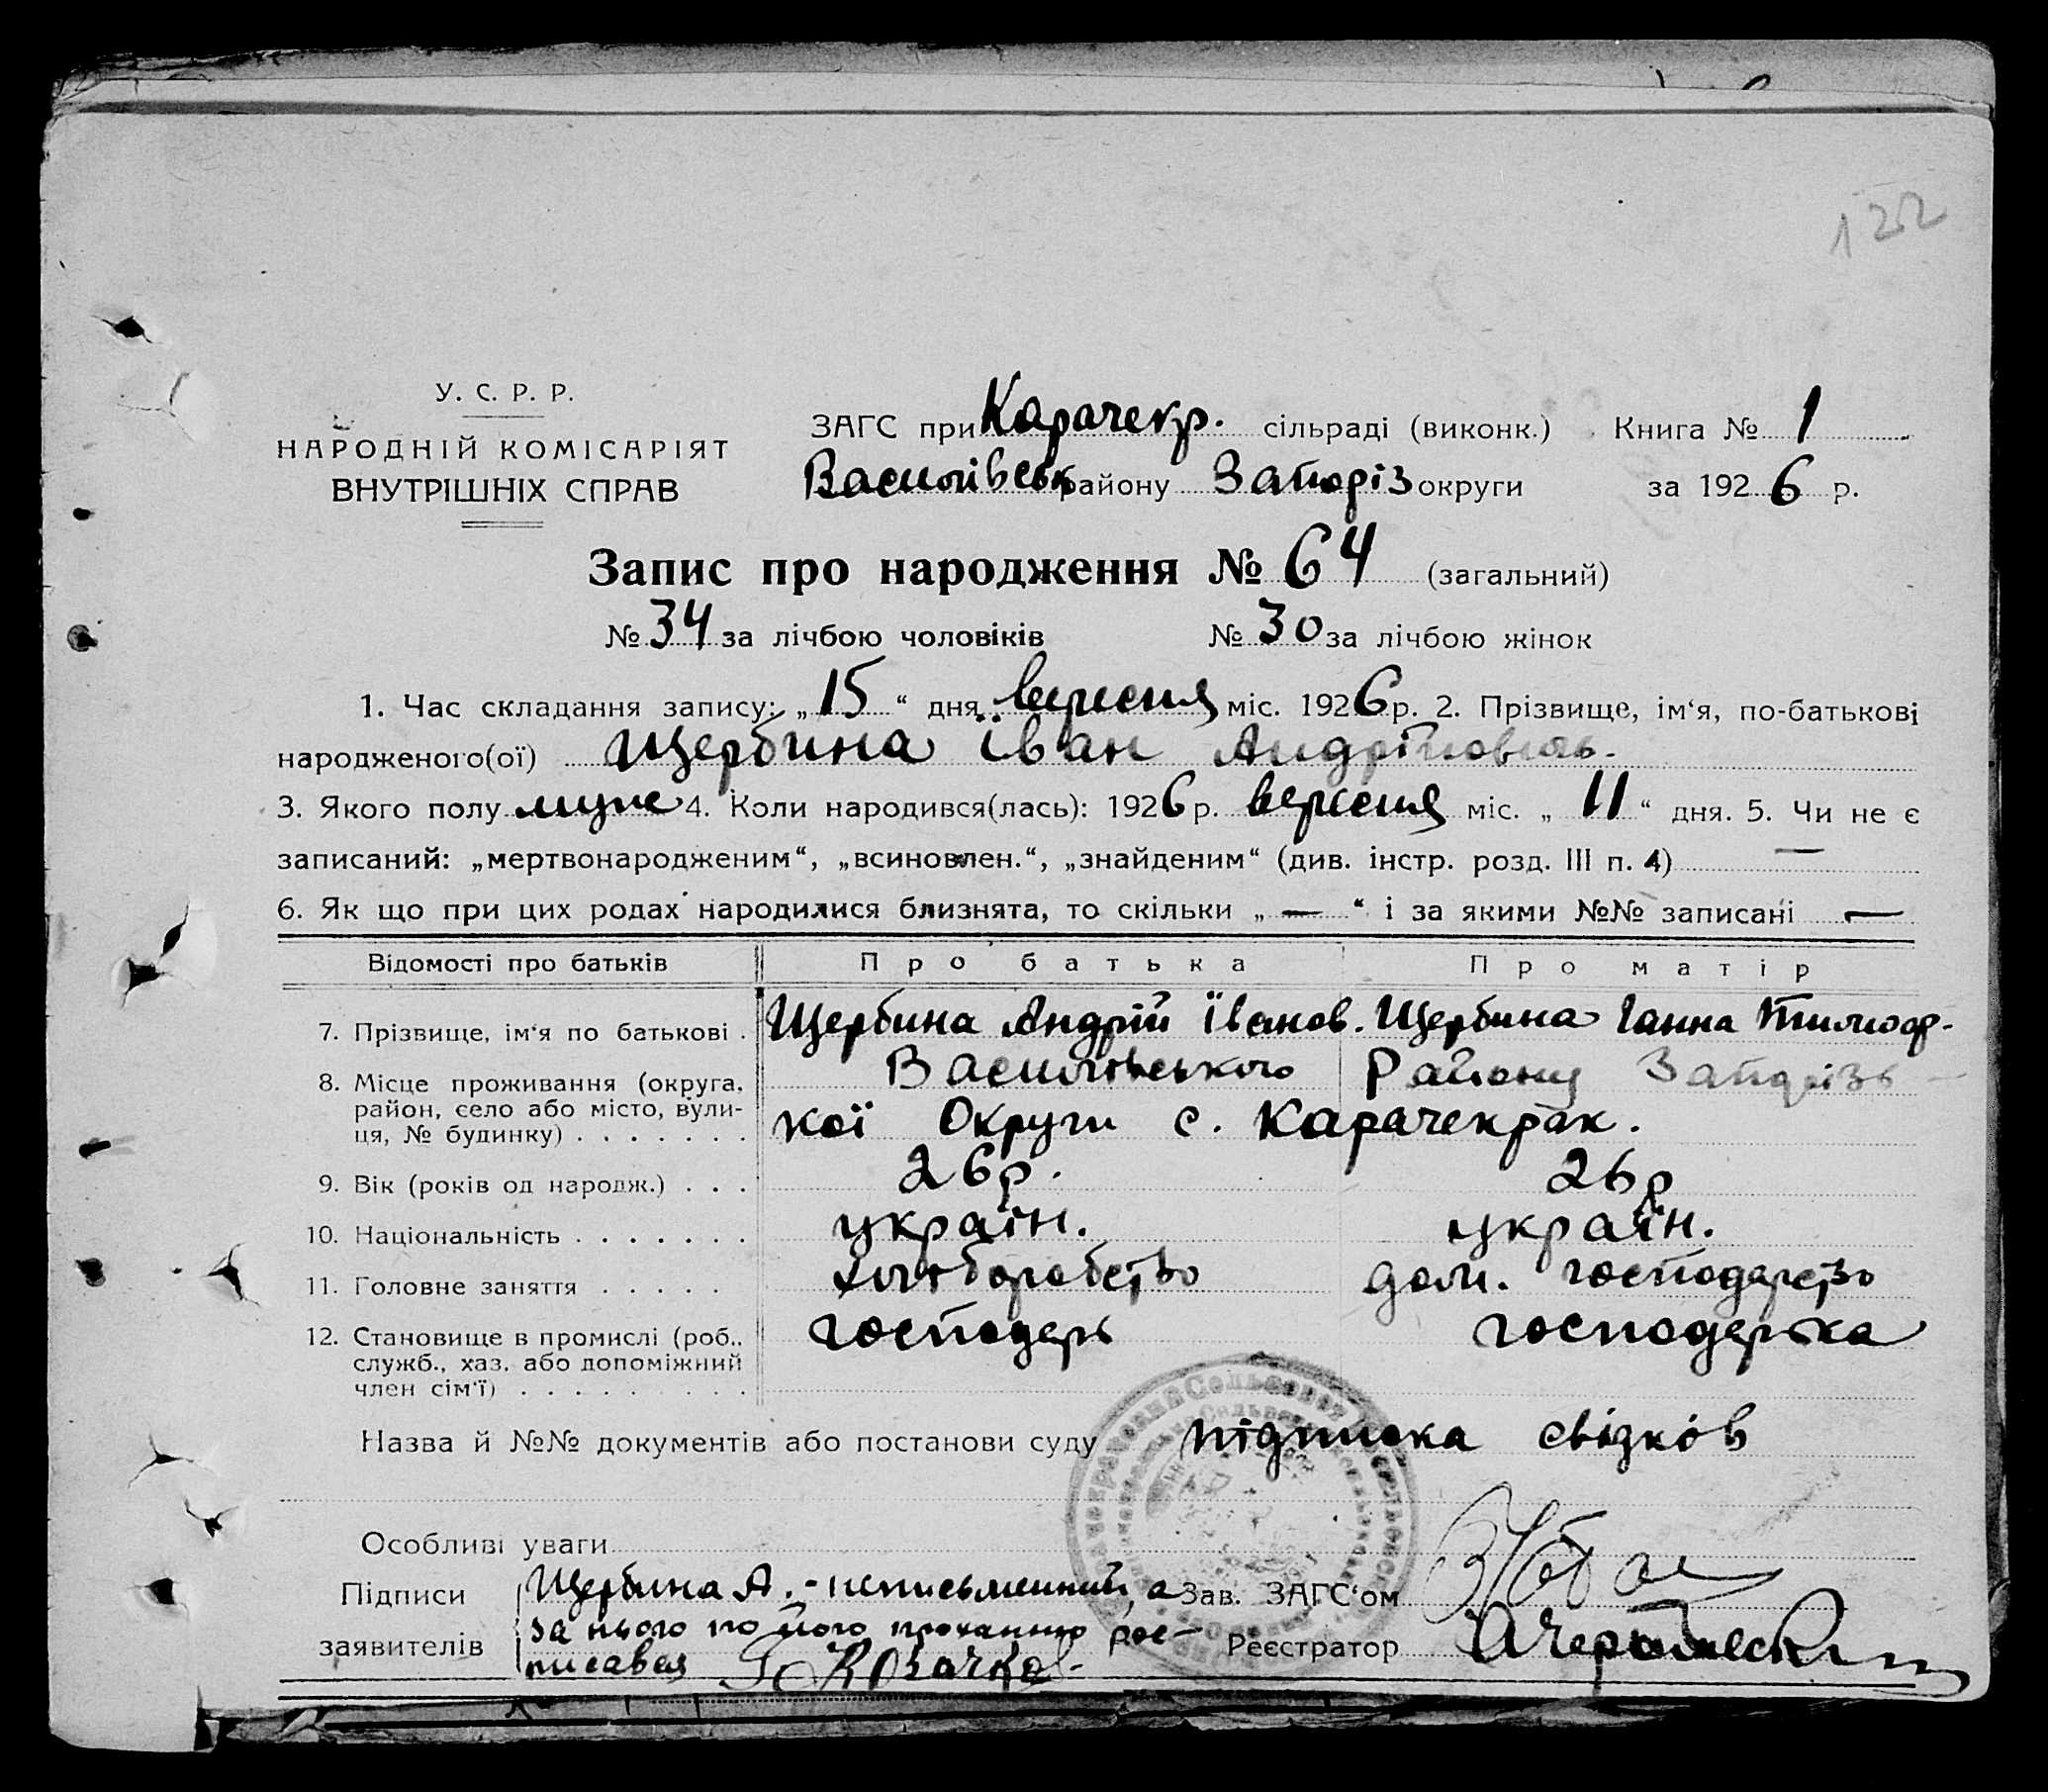 122
У. С. Р. Р.
НАРОДНІЙ КОМІСАРІЯТ
ВНУТРІШНІХ СПРАВ
ЗАГС при Карачекр. сільраді (виконк.) Книга № 1
Василівськ району Запоріз округи за 1926 р.
Запис про народження № 64 (загальний)
№ 34 за лічбою чоловіків № 30 за лічбою жінок
1. Час складання запису: „15“ дня вересня міс. 1926 р. 2. Прізвище, ім‘я, по-батькові
народженого(ої) Щербина Їван Андрійовичь.
3. Якого полу муже 4. Коли народився(лась): 1926 р. вересня міс. „11“ дня. 5. Чи не є
записаний: „мертвонародженим“, „всиновлен.“, „знайденим“ (див. інстр. розд. III п. 4) —
6. Як що при цих родах народилися близнята, то скільки „—“ і за якими №№ записані —
Відомості про батьків Про батька Про матір
7. Прізвище, ім‘я по батькові . Щербина Андрій Їванов. Щербина Ганна Тимоф.
8. Місце проживання (округа, район, село або місто, вулиця, № будинку) . . . . . . . Василівського Району Запорізь-
кої Округи с. Карачекрак.
9. Вік (років од народж.) . . . 26 р. 26 р
10. Національність . . . . . . . україн. україн.
11. Головне заняття . . . . . хліборобство дом. господарство
12. Становище в промислі (роб., служб., хаз. або допоміжний член сім‘ї) . . . . . . . . . господарь господарка
Назва й №№ документів або постанови суду підписка свізків
Особливі уваги
Підписи Щербина А. - неписьменний, а Зав. ЗАГС‘ом
заявителів за нього по його проханню рос-
писався Козачко Реєстратор